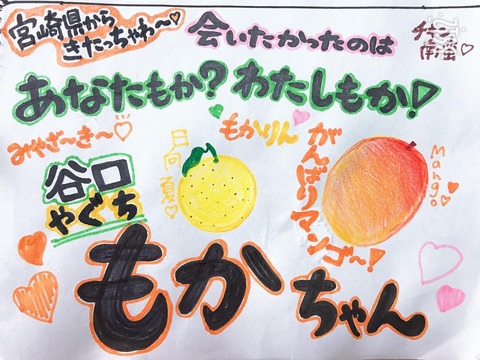 宮崎県から
きたっちゃわ〜♡
会いたかったのは
チキン
南蛮
あなたもか？わたしもか！
みやざ〜き〜♡
日向夏♡
もかりん
がんばりマンゴ〜！
Mango
谷口
やぐち
もかちゃん